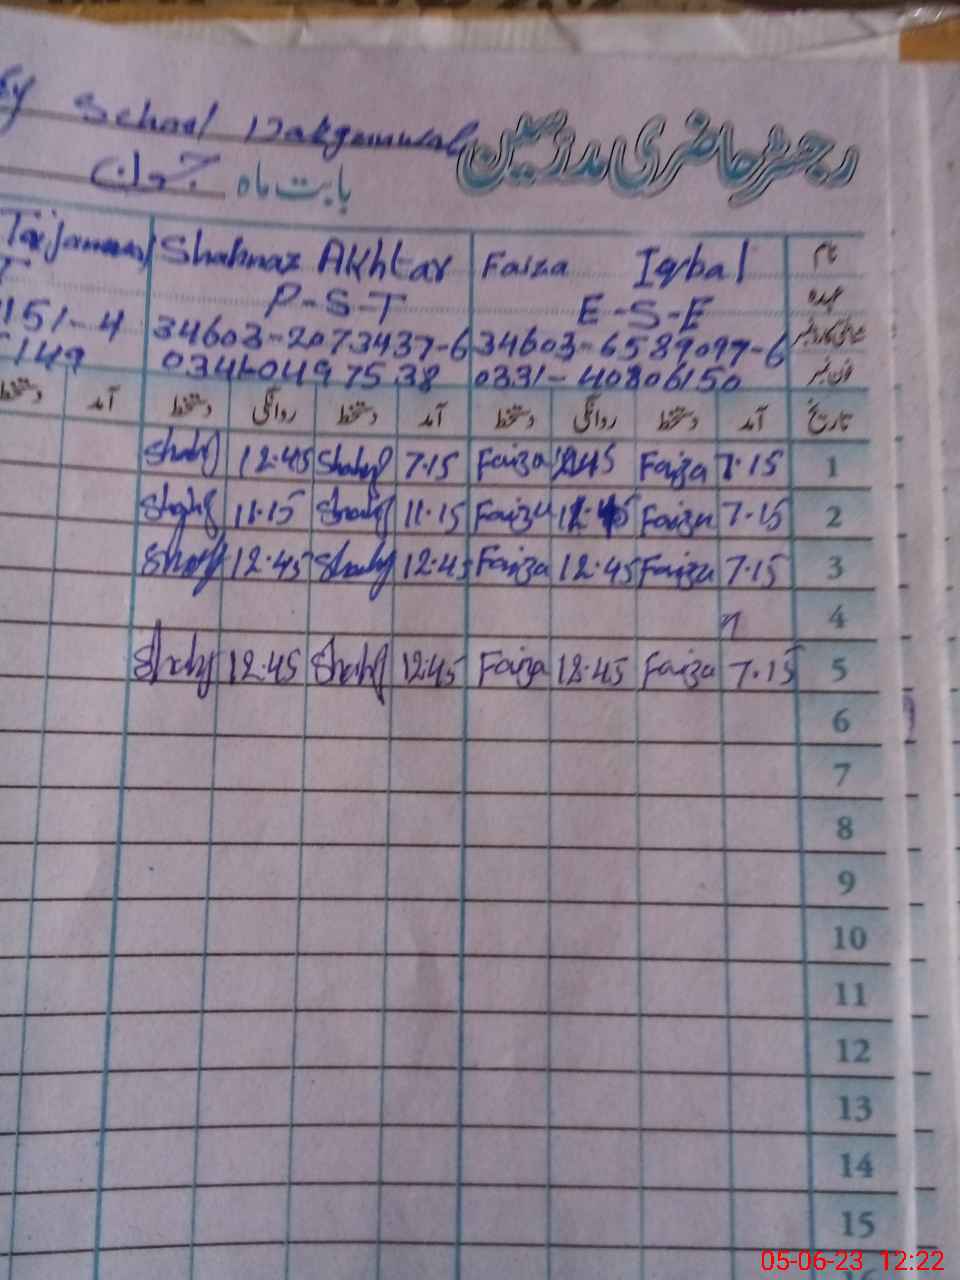 School
رجسٹر حاضری مدرسین
بابت ماہ جون
Shahnaz Akhtar Faiza Iqbal نام
P-S-T E-S-E عہدہ
151-4 34603-2073437-6 34603-6589097-6
149 03460497538 0331-40806150 فون نمبر
دستخط آمد دستخط روانگی دستخط آمد دستخط روانگی دستخط آمد تاریخ
12.45 7.15 Faiza 1245 Faiza 7.15 1
11.15 11.15 Faiza 12.45 Faiza 7.15 2
12.45 12.45 Faiza 12.45 Faiza 7.15 3
4
12.45 12.45 Faiza 12.45 Faiza 7.15 5
6
7
8
9
10
11
12
13
14
15
05-06-23 12:22